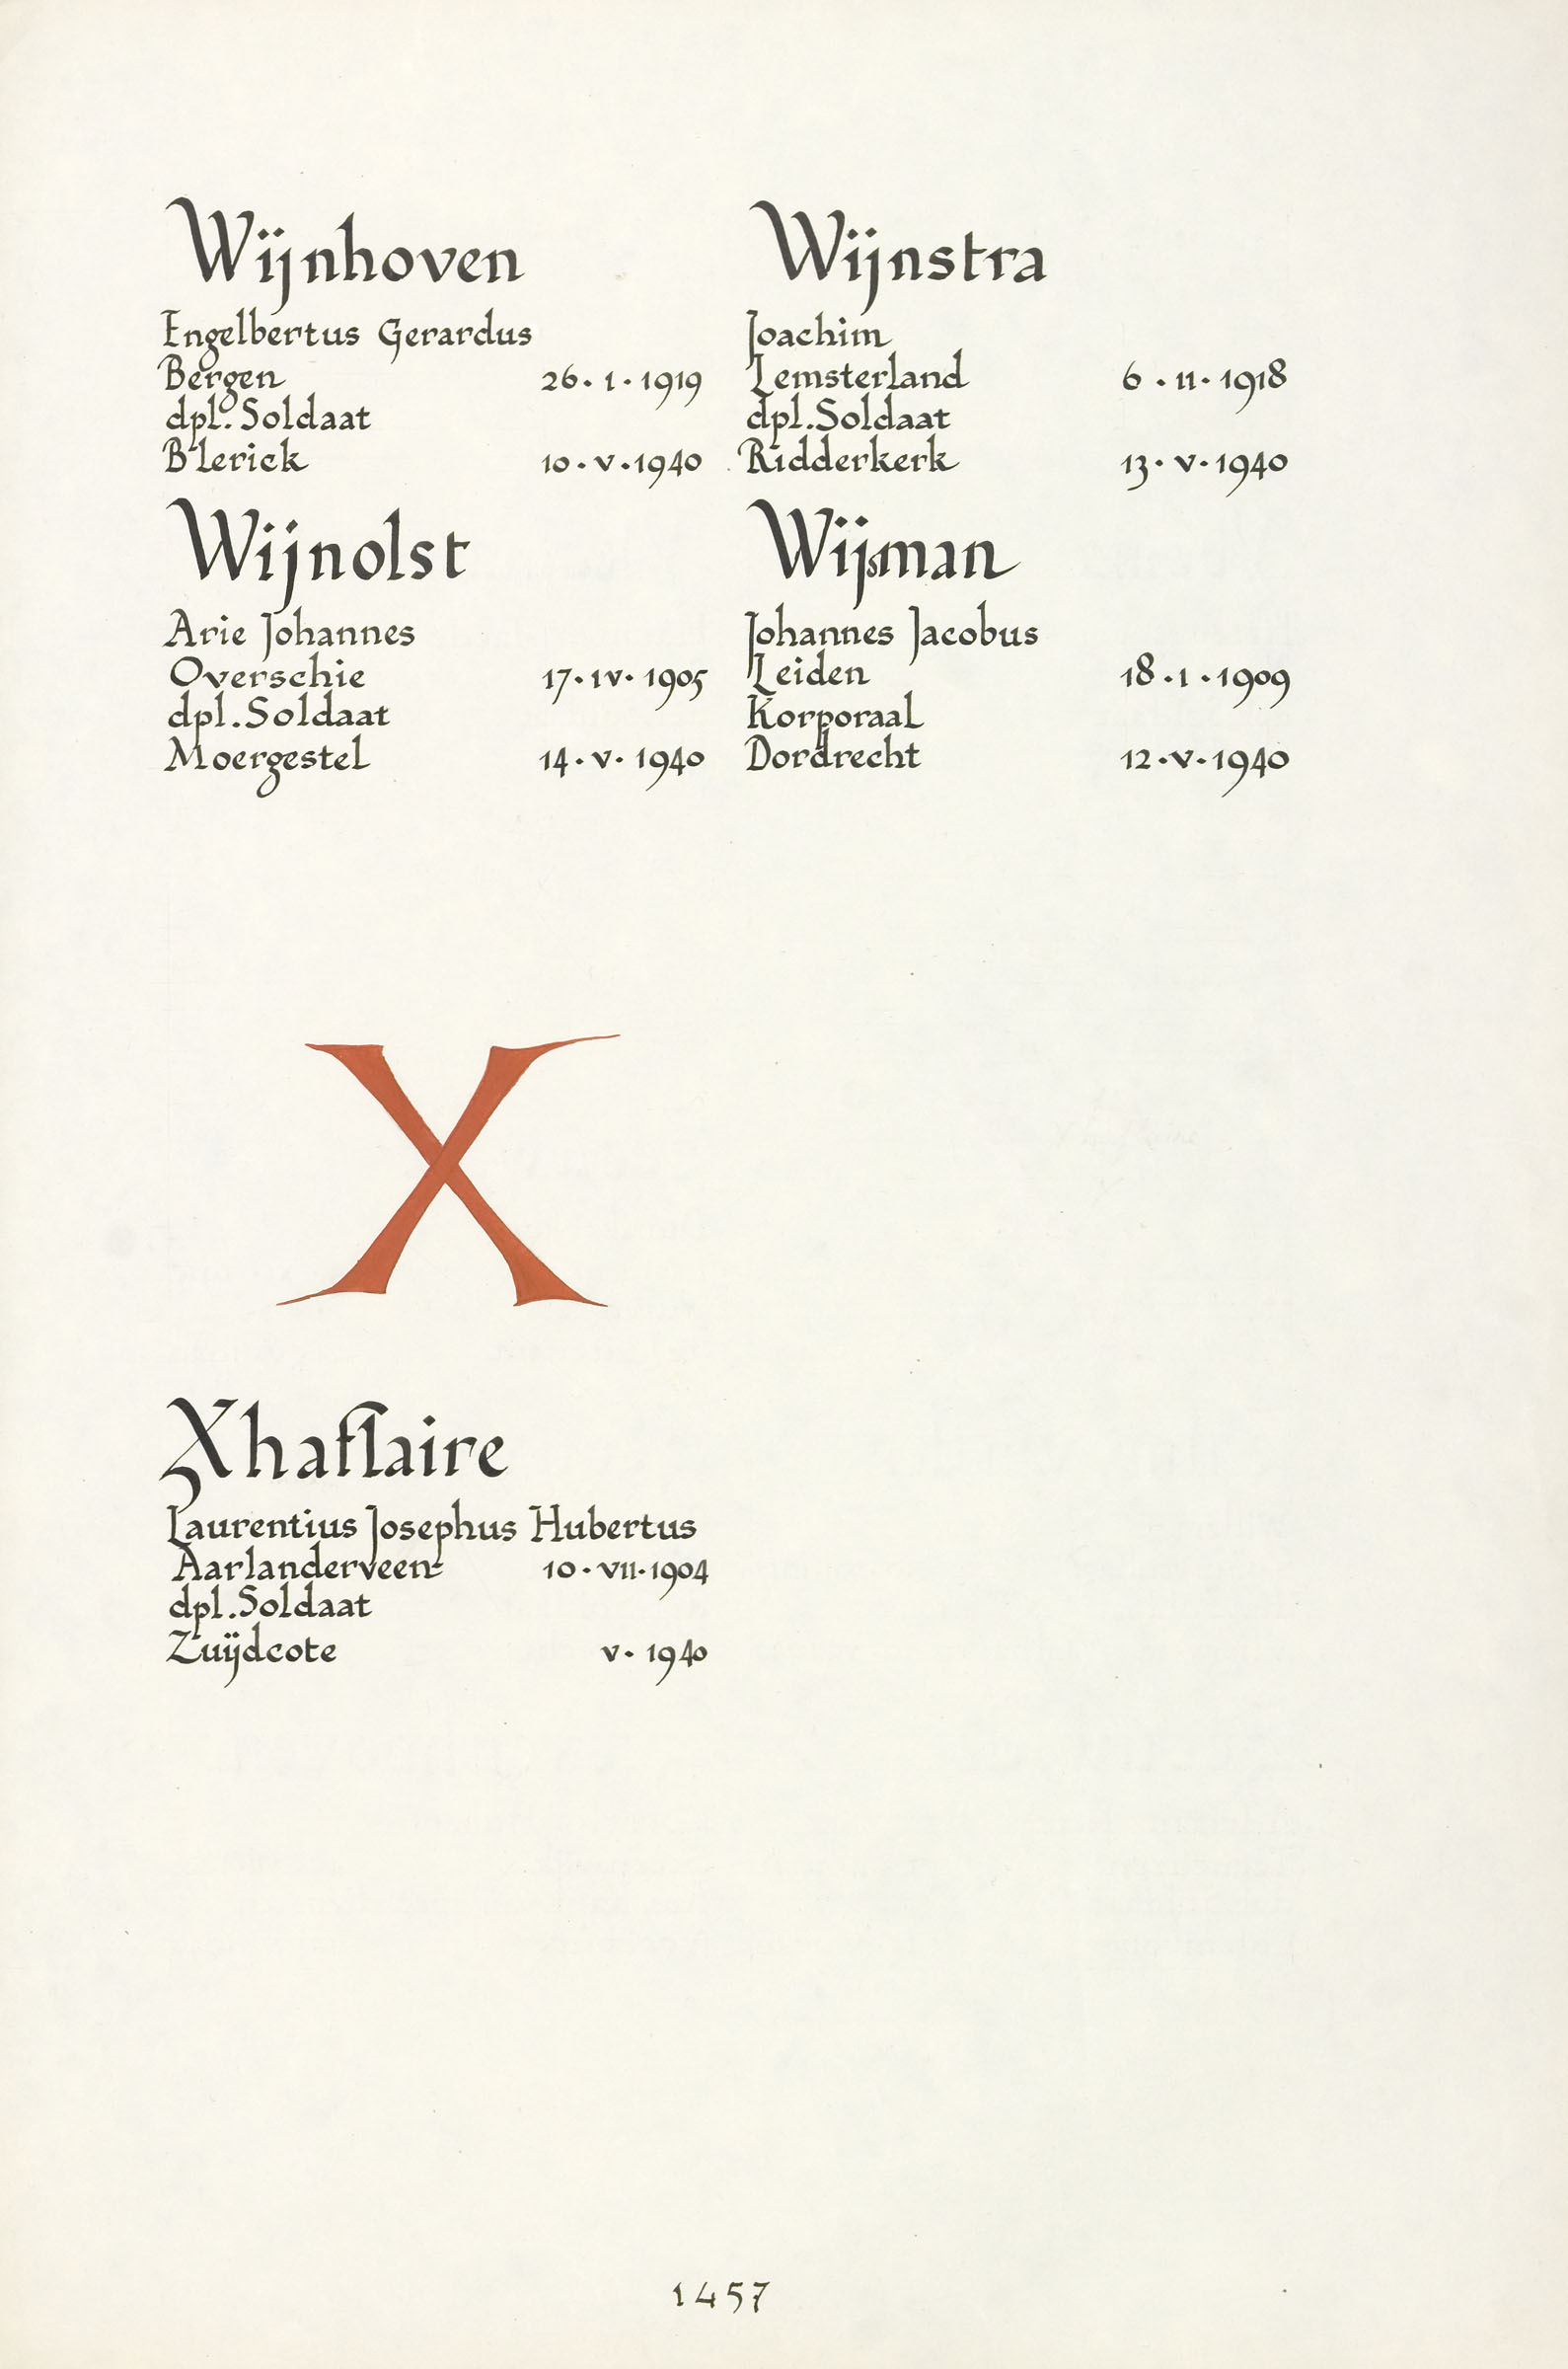 Wijnhoven
Engelbertus Gerardus
Bergen 26·I·1919
dpl. Soldaat
Blerick 10·V·1940
Wijnolst
Arie Johannes
Overschie 17·IV·1905
dpl. Soldaat
Moergestel 14·V·1940
Wijnstra
Joachim
Lemsterland 6·II·1918
dpl. Soldaat
Ridderkerk 13·V·1940
Wijsman
Johannes Jacobus
Leiden 18·I·1909
Korporaal
Dordrecht 12·V·1940
X
Xhaflaire
Laurentius Josephus Hubertus
Aarlanderveen 10·VII·1904
dpl. Soldaat
Zuijdcote V·1940
1457